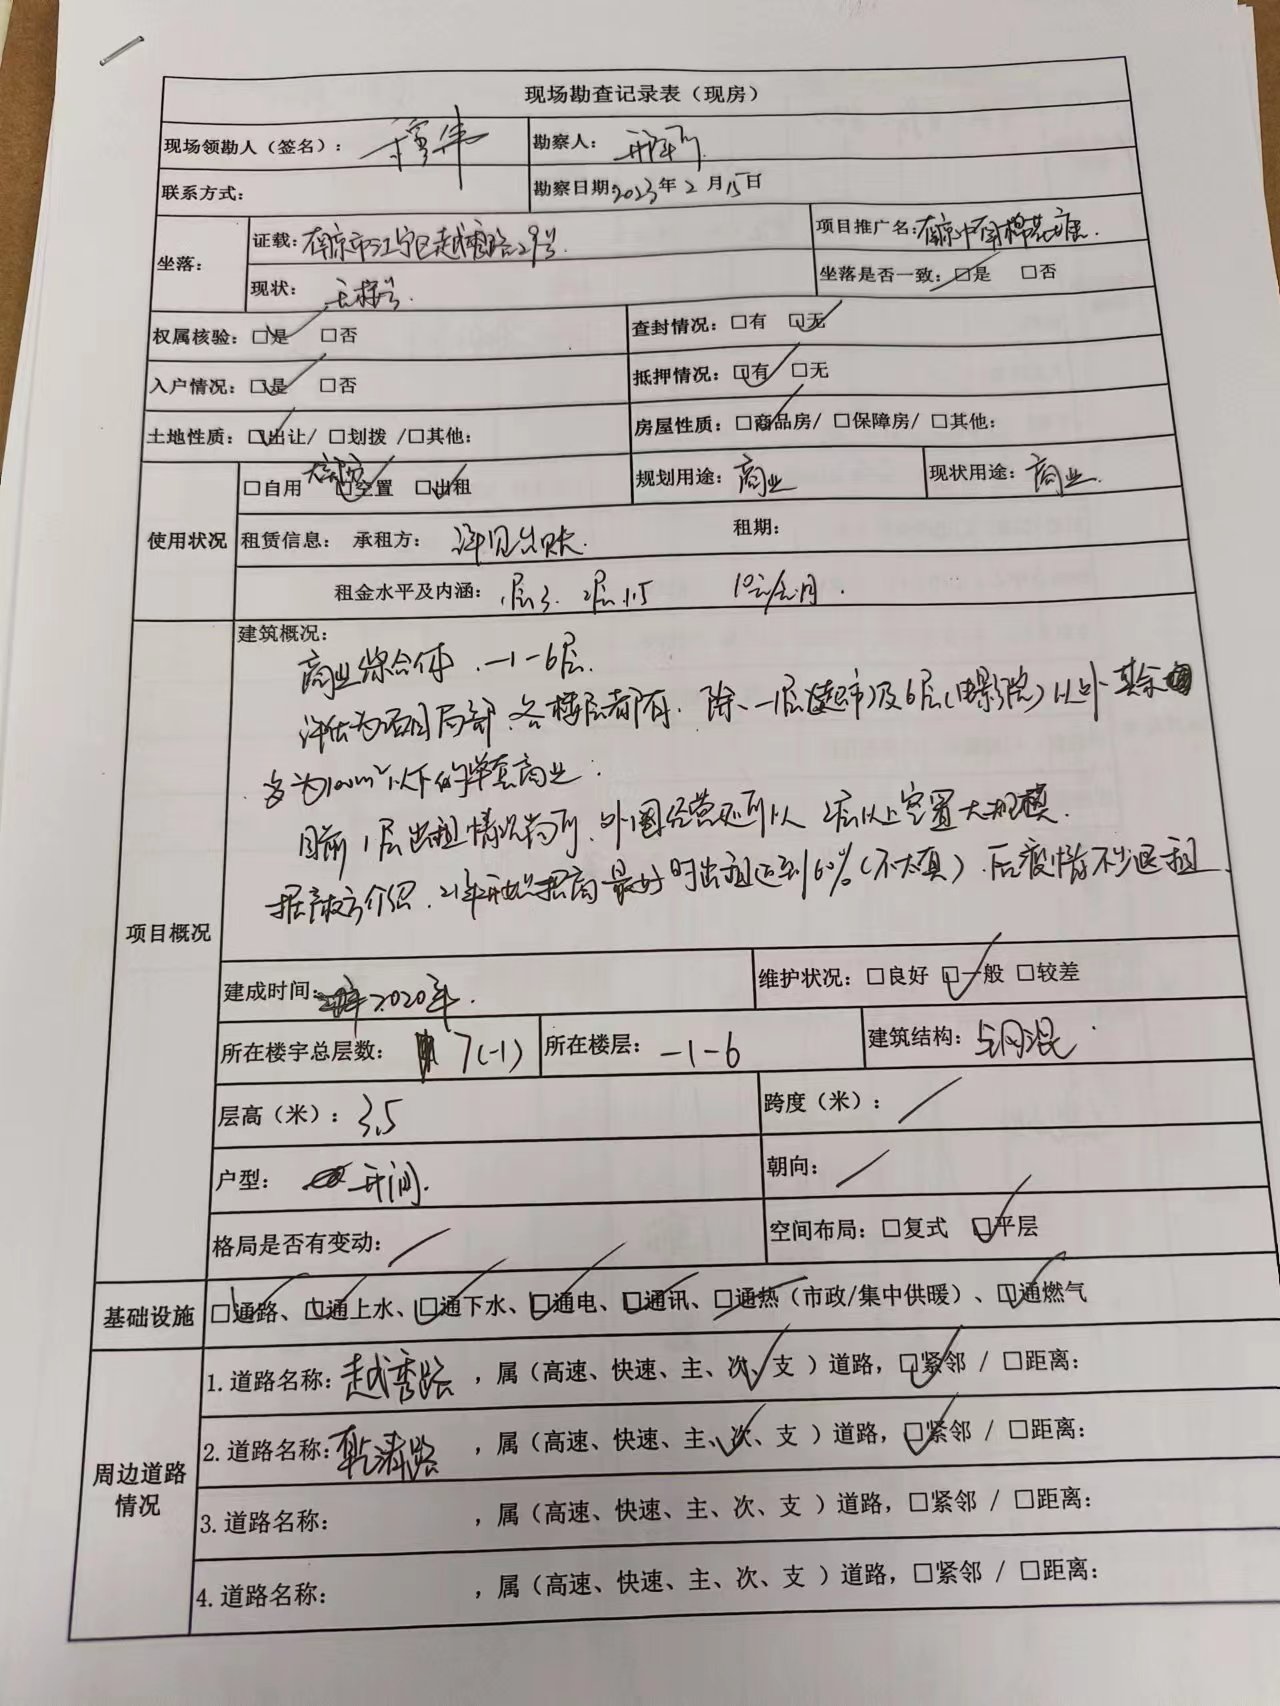 现场勘查记录表（现房）
现场领勘人（签名）： 勘察人：
联系方式： 勘察日期：2023年2月15日
坐落： 证载：南京市江宁区越秀路29号. 项目推广名：南京
现状：无楼号. 坐落是否一致：☑是 □否
权属核验：☑是 □否 查封情况：□有 ☑无
入户情况：☑是 □否 抵押情况：☑有 □无
土地性质：☑出让/ □划拨 /□其他： 房屋性质：☑商品房/ □保障房/ □其他：
使用状况 □自用 大部分 ☑空置 ☑出租 规划用途：商业 现状用途：商业.
租赁信息： 承租方：详见台账. 租期：
租金水平及内涵：1层3. 2层1.5 10元/㎡.月.
项目概况
建筑概况：
商业综合体.-1-6层.
评估为项目局部.各楼层都有.除-1层(超市)及6层(电影院)以外其余
多为100m²以下的单套商业.
目前1层出租情况尚可.外围经营还可以 2层以上空置大规模.
据产权方介绍.21年开始招商最好时出租达到60%(不太真).后疫情不少退租.
建成时间：2020年. 维护状况：□良好 ☑一般 □较差
所在楼宇总层数：7(-1) 所在楼层：-1-6 建筑结构：钢混
层高（米）：3.5 跨度（米）：/
户型：开间. 朝向：/
格局是否有变动：/ 空间布局：□复式 ☑平层
基础设施 ☑通路、☑通上水、☑通下水、☑通电、☑通讯、☑通热（市政/集中供暖）、☑通燃气
周边道路情况
1.道路名称：越秀路 ，属（高速、快速、主、次、支 ）道路，☑紧邻 / □距离：
2.道路名称：乾清路 ，属（高速、快速、主、次、支 ）道路，☑紧邻 / □距离：
3.道路名称： ，属（高速、快速、主、次、支 ）道路，□紧邻 / □距离：
4.道路名称： ，属（高速、快速、主、次、支 ）道路，□紧邻 / □距离：